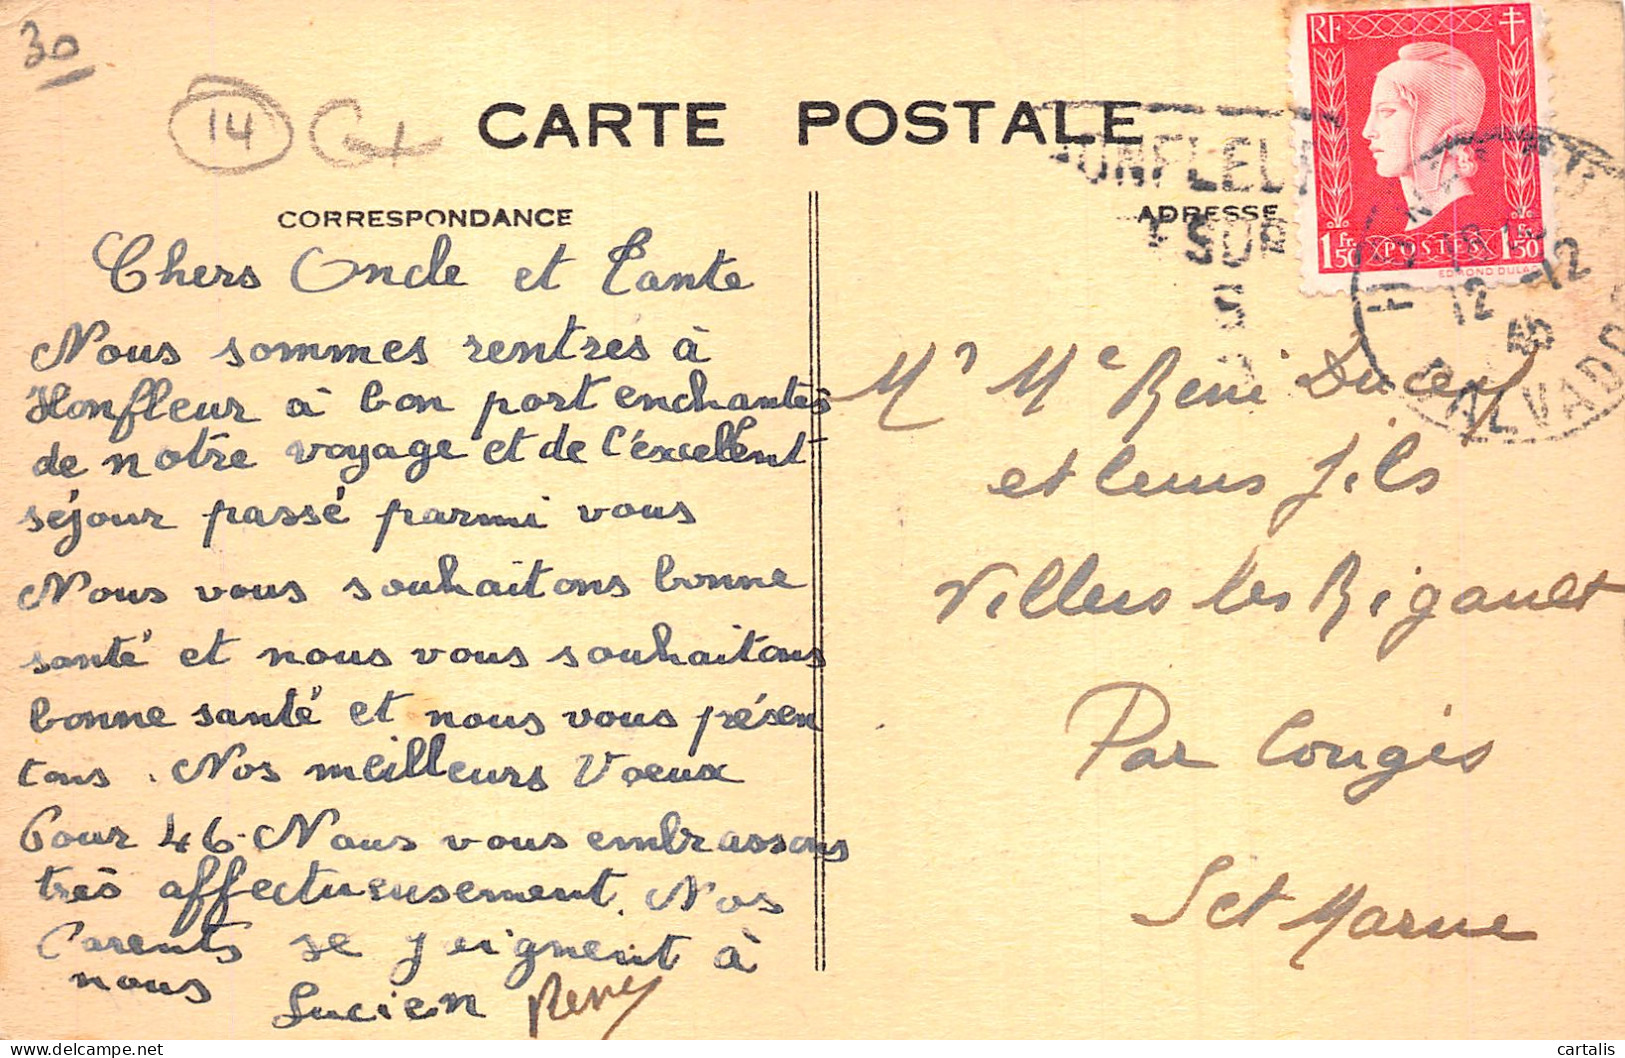 30
14
CARTE POSTALE
CORRESPONDANCE
ADRESSE
RF
1 Fr. 50 POSTES 1 F. 50
EDMOND DULAC
HONFLEUR
SUR
12 -12
45
CALVADOS
Chers Oncle et Tante
Nous sommes rentres à
Honfleur à bon port enchantés
de notre voyage et de l'éxcellent
séjour passé parmi vous
Nous vous souhaitons bonne
santé et nous vous souhaitons
bonne santé et nous vous présen
tons . Nos meilleurs Voeux
Pour 46. Nous vous embrassons
très affectueusement. Nos
Parents se joignent à
nous
Lucien Reney
Mr Me René Ducey
et leurs fils
Villers les Rigault
Par Congis
S et Marne
cartalis